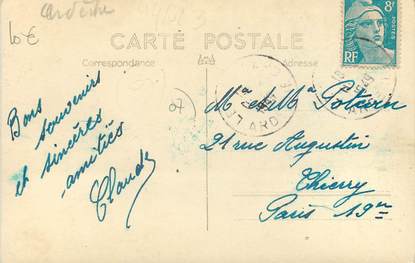 ardèche
10€
CARTE POSTALE
Correspondance
Adresse
8F
POSTES
RF
07
Bons
souvenirs
et sincères
amitiés
Claude
Mr et Me Potvin
21 rue Augustin
Thierry
Paris 19e